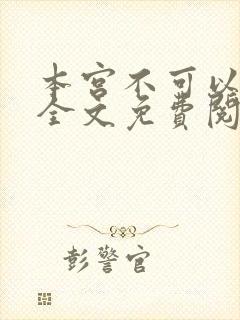 本宫不可以
全文免费阅
彭警官